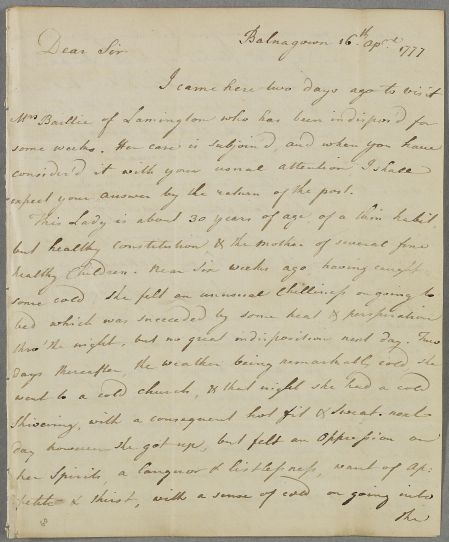 Balnagown 16.th Apr.l 1777
Dear Sir
I came here two days ago to visit
Mrs Baillie of Lamington who has been indispos'd for
some weeks. Her case is subjoin'd, and when you have
consider'd it with your usual attention I shall
expect your answer by the return of the post.
This Lady is about 30 years of age, of a thin habit,
but healthy constitution, & the mother of several fine
healthy Children. Near Six weeks ago, having caught
some cold she felt an unusual Chilliness on going to
bed which was succeeded by some heat & perspiration
thro' the night, but no great indisposition next day. Two
days thereafter, the weather being remarkably cold she
went to a cold church, & that night she had a cold
shivering, with a consequent hot fit & Sweat. next
day however she got up, but felt an Oppression on
her Spirits, a Languor & listlessness, want of Ap:
:petite & thirst, with a sense of cold on going into
the
8